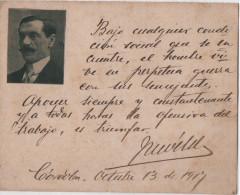 Bajo cualquier condi
ción social que se en
cuentre, el hombre vi
ve en perpetua guerra
con sus semejantes.
Apoyar siempre y constantemente
y a todas horas la ofensiva del
trabajo, es triunfar.
Córdoba, Octubre 13 de 1917